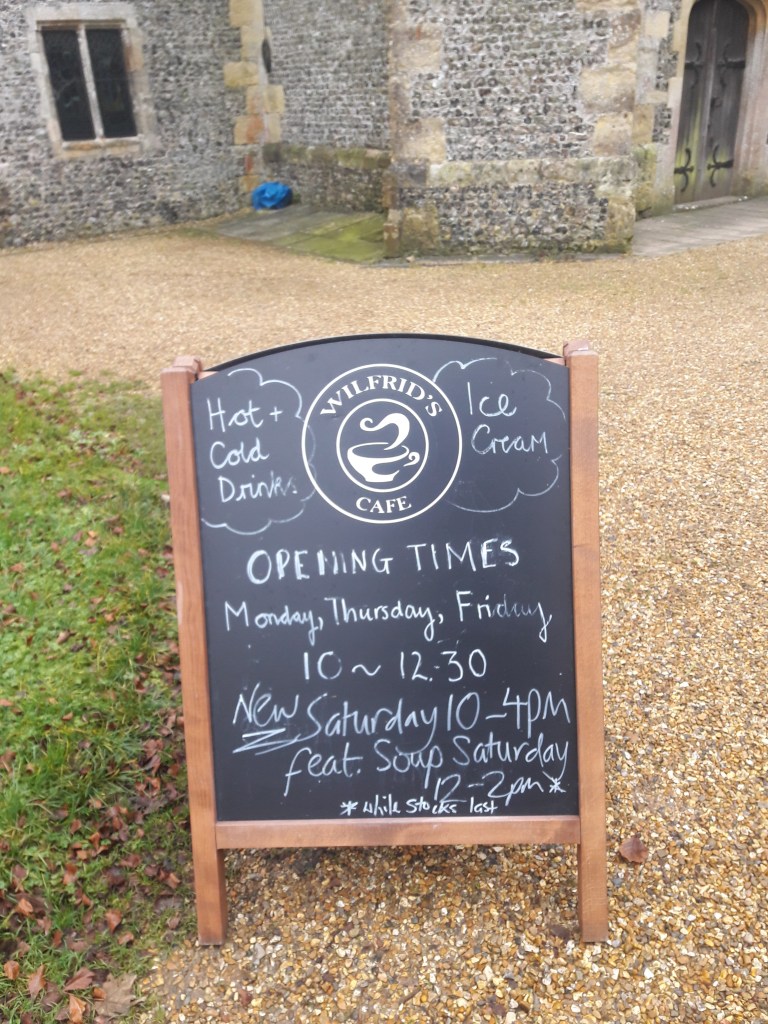 Hot +
Cold
Drinks
WILFRID'S
CAFE
Ice
Cream
OPENING TIMES
Monday, Thursday, Friday
10 ~ 12.30
New Saturday 10-4pm
feat. Soup Saturday
12-2pm*
*while stocks last